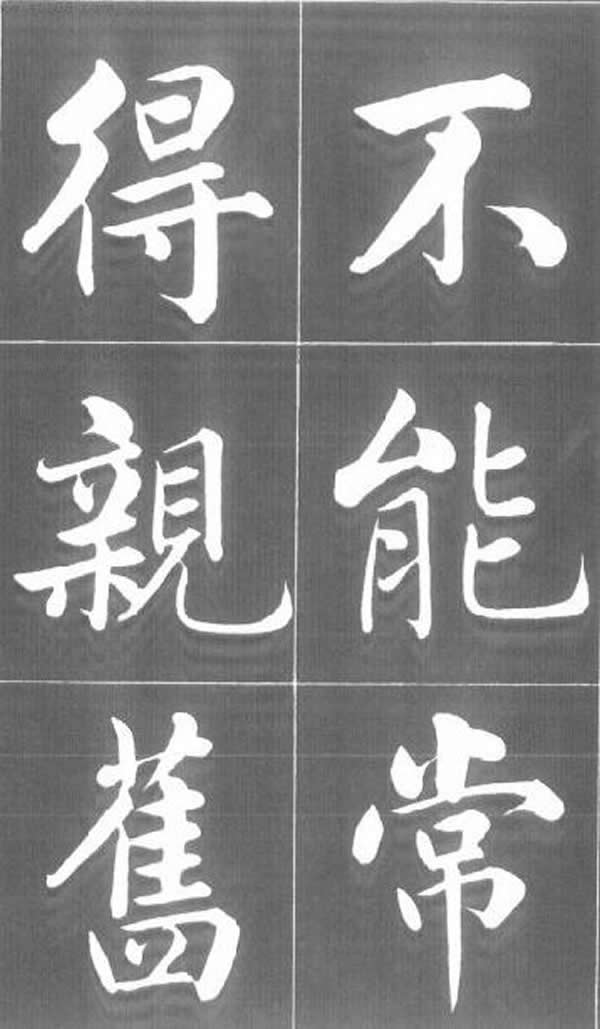 不能常
得親舊